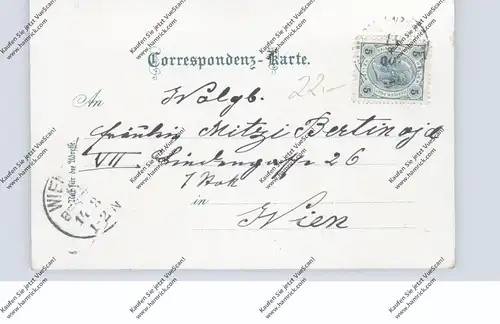 Correspondenz-Karte.
22.-
5 5
An Wolgb.
Fräulein Mitzi Bertinoja
VII. Lindengasse 26
1 Stok
in
Wien
Nur für die Adresse.
WIEN
Kaufen Sie jetzt VueScan!
www.hamrick.com